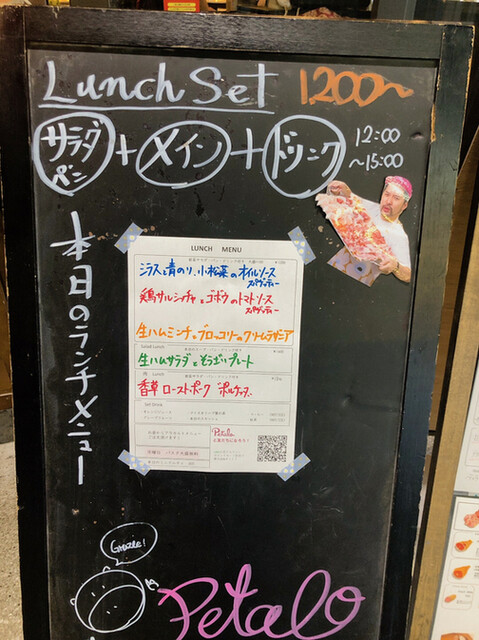 Lunch Set 1200~
サラダ
パン
+ メイン + ドリンク
12:00
~15:00
本日のランチメニュー
LUNCH MENU
シラスと青のり、小松菜のオイルソース
スパゲッティー
鶏サルシッチャとゴボウのトマトソース
スパゲッティー
生ハムミンチとブロッコリーのクリームラザニア
Salad Lunch
生ハムサラダとそうざいプレート
肉 Lunch
香草ローストポーク "ポルケッタ"
Set Drink
Petalo
Grazie!
Petalo